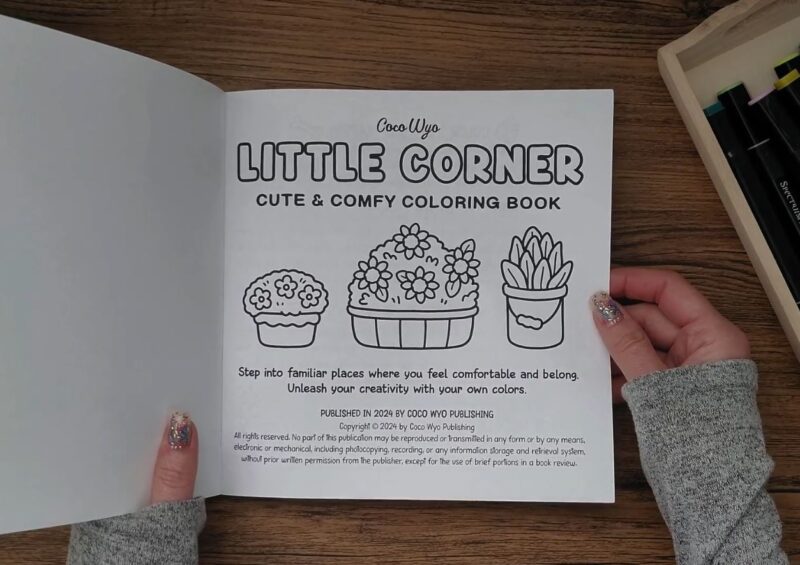 Coco Wyo
LITTLE CORNER
CUTE & COMFY COLORING BOOK
Step into familiar places where you feel comfortable and belong.
Unleash your creativity with your own colors.
PUBLISHED IN 2024 BY COCO WYO PUBLISHING
Copyright © 2024 by Coco Wyo Publishing
All rights reserved. No part of this publication may be reproduced or transmitted in any form or by any means,
electronic or mechanical, including photocopying, recording, or any information storage and retrieval system,
without prior written permission from the publisher, except for the use of brief portions in a book review.